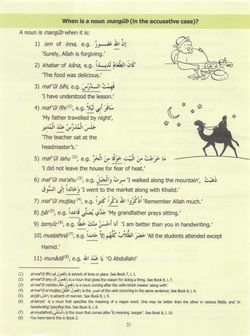 When is a noun manṣūb (in the accusative case)?
A noun is manṣūb when it is:
1) ism of inna, e.g. إِنَّ اللهَ غَفُورٌ
'Surely, Allah is forgiving.'
2) khabar of kāna, e.g. كَانَ الطَّعَامُ لَذِيذًا
'The food was delicious.'
3) mafʿūl bihi, e.g. فَهِمْتُ الدَّرْسَ
'I have understood the lesson.'
4) mafʿūl fīhi (1), e.g. سَافَرَ أَبِي لَيْلًا
'My father travelled by night',
جَلَسَ الْمُدَرِّسُ عِنْدَ الْمُدِيرِ
'The teacher sat at the
headmaster's.'
5) mafʿūl lahu (2), e.g. مَا خَرَجْتُ مِنَ الْبَيْتِ خَوْفًا مِنَ الْحَرِّ
'I did not leave the house for fear of heat.'
6) mafʿūl maʿahu (3), e.g. سِرْتُ وَالْجَبَلَ 'I walked along the mountain', ذَهَبْتُ
إِلَى السُّوقِ وَخَالِدًا 'I went to the market along with Khalid.'
7) mafʿūl muṭlaq (4), e.g. اُذْكُرُوا اللهَ ذِكْرًا كَثِيرًا 'Remember Allah much.'
8) ḥāl (5), e.g. جَدِّي يُصَلِّي قَاعِدًا 'My grandfather prays sitting.'
9) tamyīz (6), e.g. أَنَا أَحْسَنُ مِنْكَ خَطًّا 'I am better than you in handwriting.'
10) mustathnā (7), e.g. حَضَرَ الطُّلَّابُ كُلُّهُمْ إِلَّا حَامِدًا 'All the students attended except
Hamid.'
11) munādā (8), e.g. يَا عَبْدَ اللهِ 'O Abdullah!'
is adverb of time or place. See Book 7, L 1.
is a noun giving the reason for doing a thing. See Book 8, L 7.
is a noun coming after the wāw which means 'along with'.
is the maṣdar of the verb occurring in the same sentence. See Book 8, L 6.
is adverb of manner. See Book 8, L 9.
is a noun that specifies the meaning of a vague word. One may be better than the other in various fields; and 'in
handwriting' specifies this.
See Book 8, L 10.
(8) You have learnt this in Book 2.
31